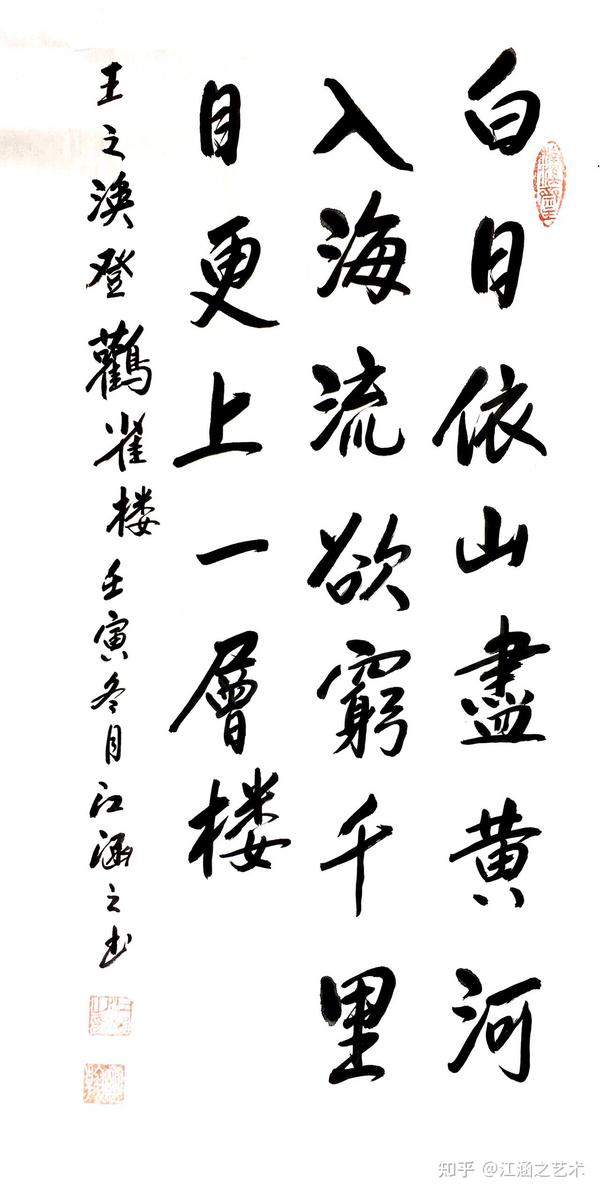 白日依山盡黄河
入海流欲窮千里
目更上一層楼
王之涣登鸛雀楼壬寅冬月江涵之书
知乎 @江涵之艺术